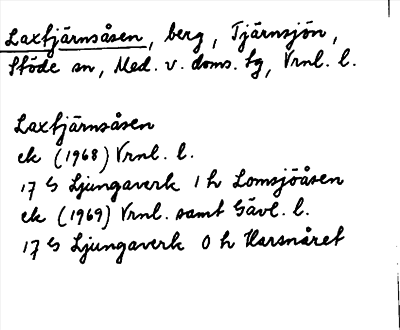 Laxtjärnsåsen, berg, Tjärnsjön,
Stöde sn, Med. v. doms. tg, Vrnl. l.
Laxtjärnsåsen
ek (1968) Vrnl. l.
17 G Ljungaverk 1 h Lomsjöåsen
ek (1969) Vrnl. samt Gävl. l.
17 G Ljungaverk 0 h Harsnåret